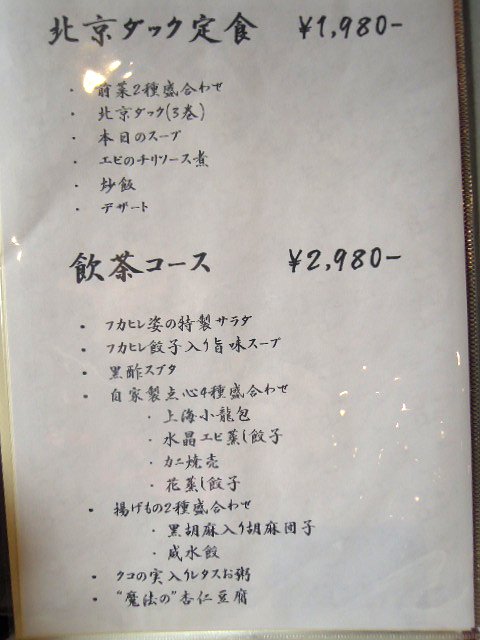 北京ダック定食 ¥1,980-
・前菜2種盛合わせ
・北京ダック(3巻)
・本日のスープ
・エビのチリソース煮
・炒飯
・デザート
飲茶コース ¥2,980-
・フカヒレ姿の特製サラダ
・フカヒレ餃子入り旨味スープ
・黒酢スブタ
・自家製点心4種盛合わせ
・上海小龍包
・水晶エビ蒸し餃子
・カニ焼売
・花蒸し餃子
・揚げもの2種盛合わせ
・黒胡麻入り胡麻団子
・咸水餃
・クコの実入りレタスお粥
・"魔法の"杏仁豆腐